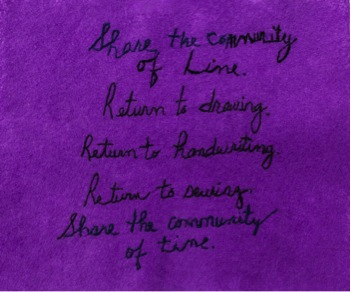 Share the community
of Line.
Return to drawing.
Return to handwriting.
Return to sewing.
Share the community
of time.